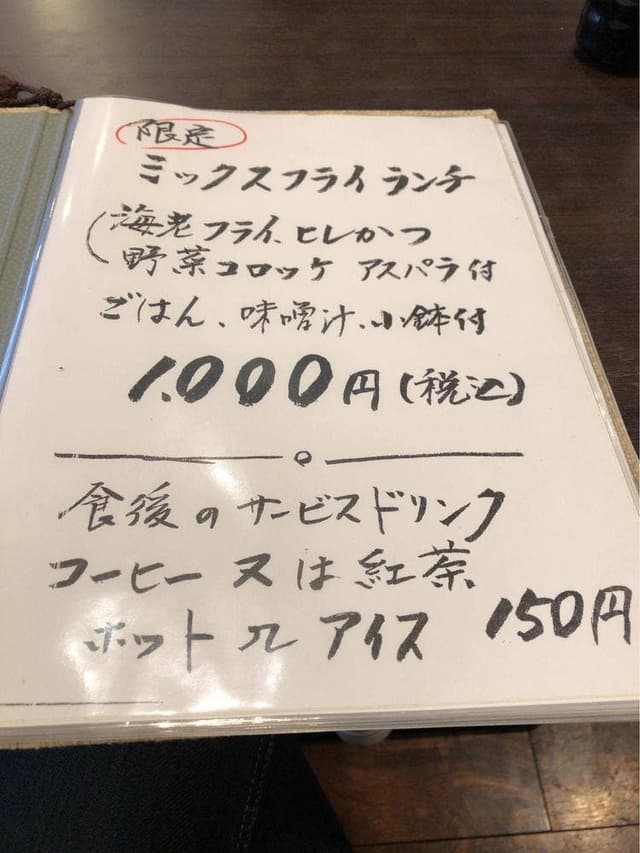 限定
ミックスフライランチ
海老フライ、ヒレかつ
野菜コロッケ アスパラ付
ごはん、味噌汁、小鉢付
1,000円(税込)
食後のサービスドリンク
コーヒー又は紅茶
ホット or アイス 150円